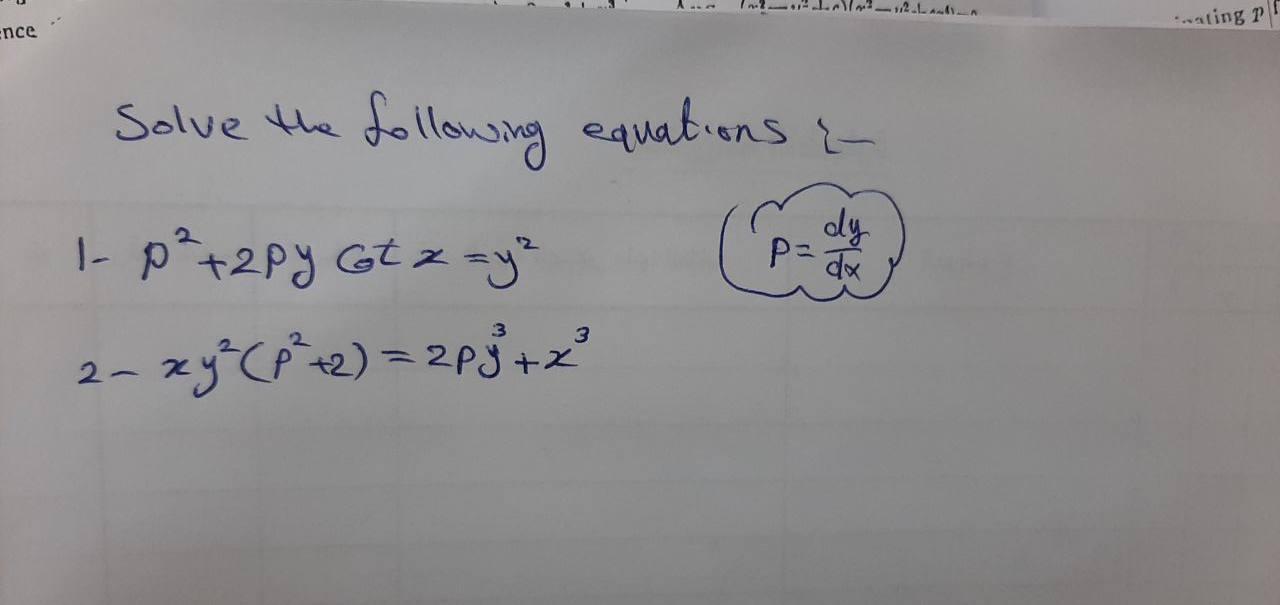 ence
ating P
Solve the following equations :-
1- p²+2py Cot x = y²
(p = dy/dx)
2 - xy²(p²+2) = 2py³ + x³